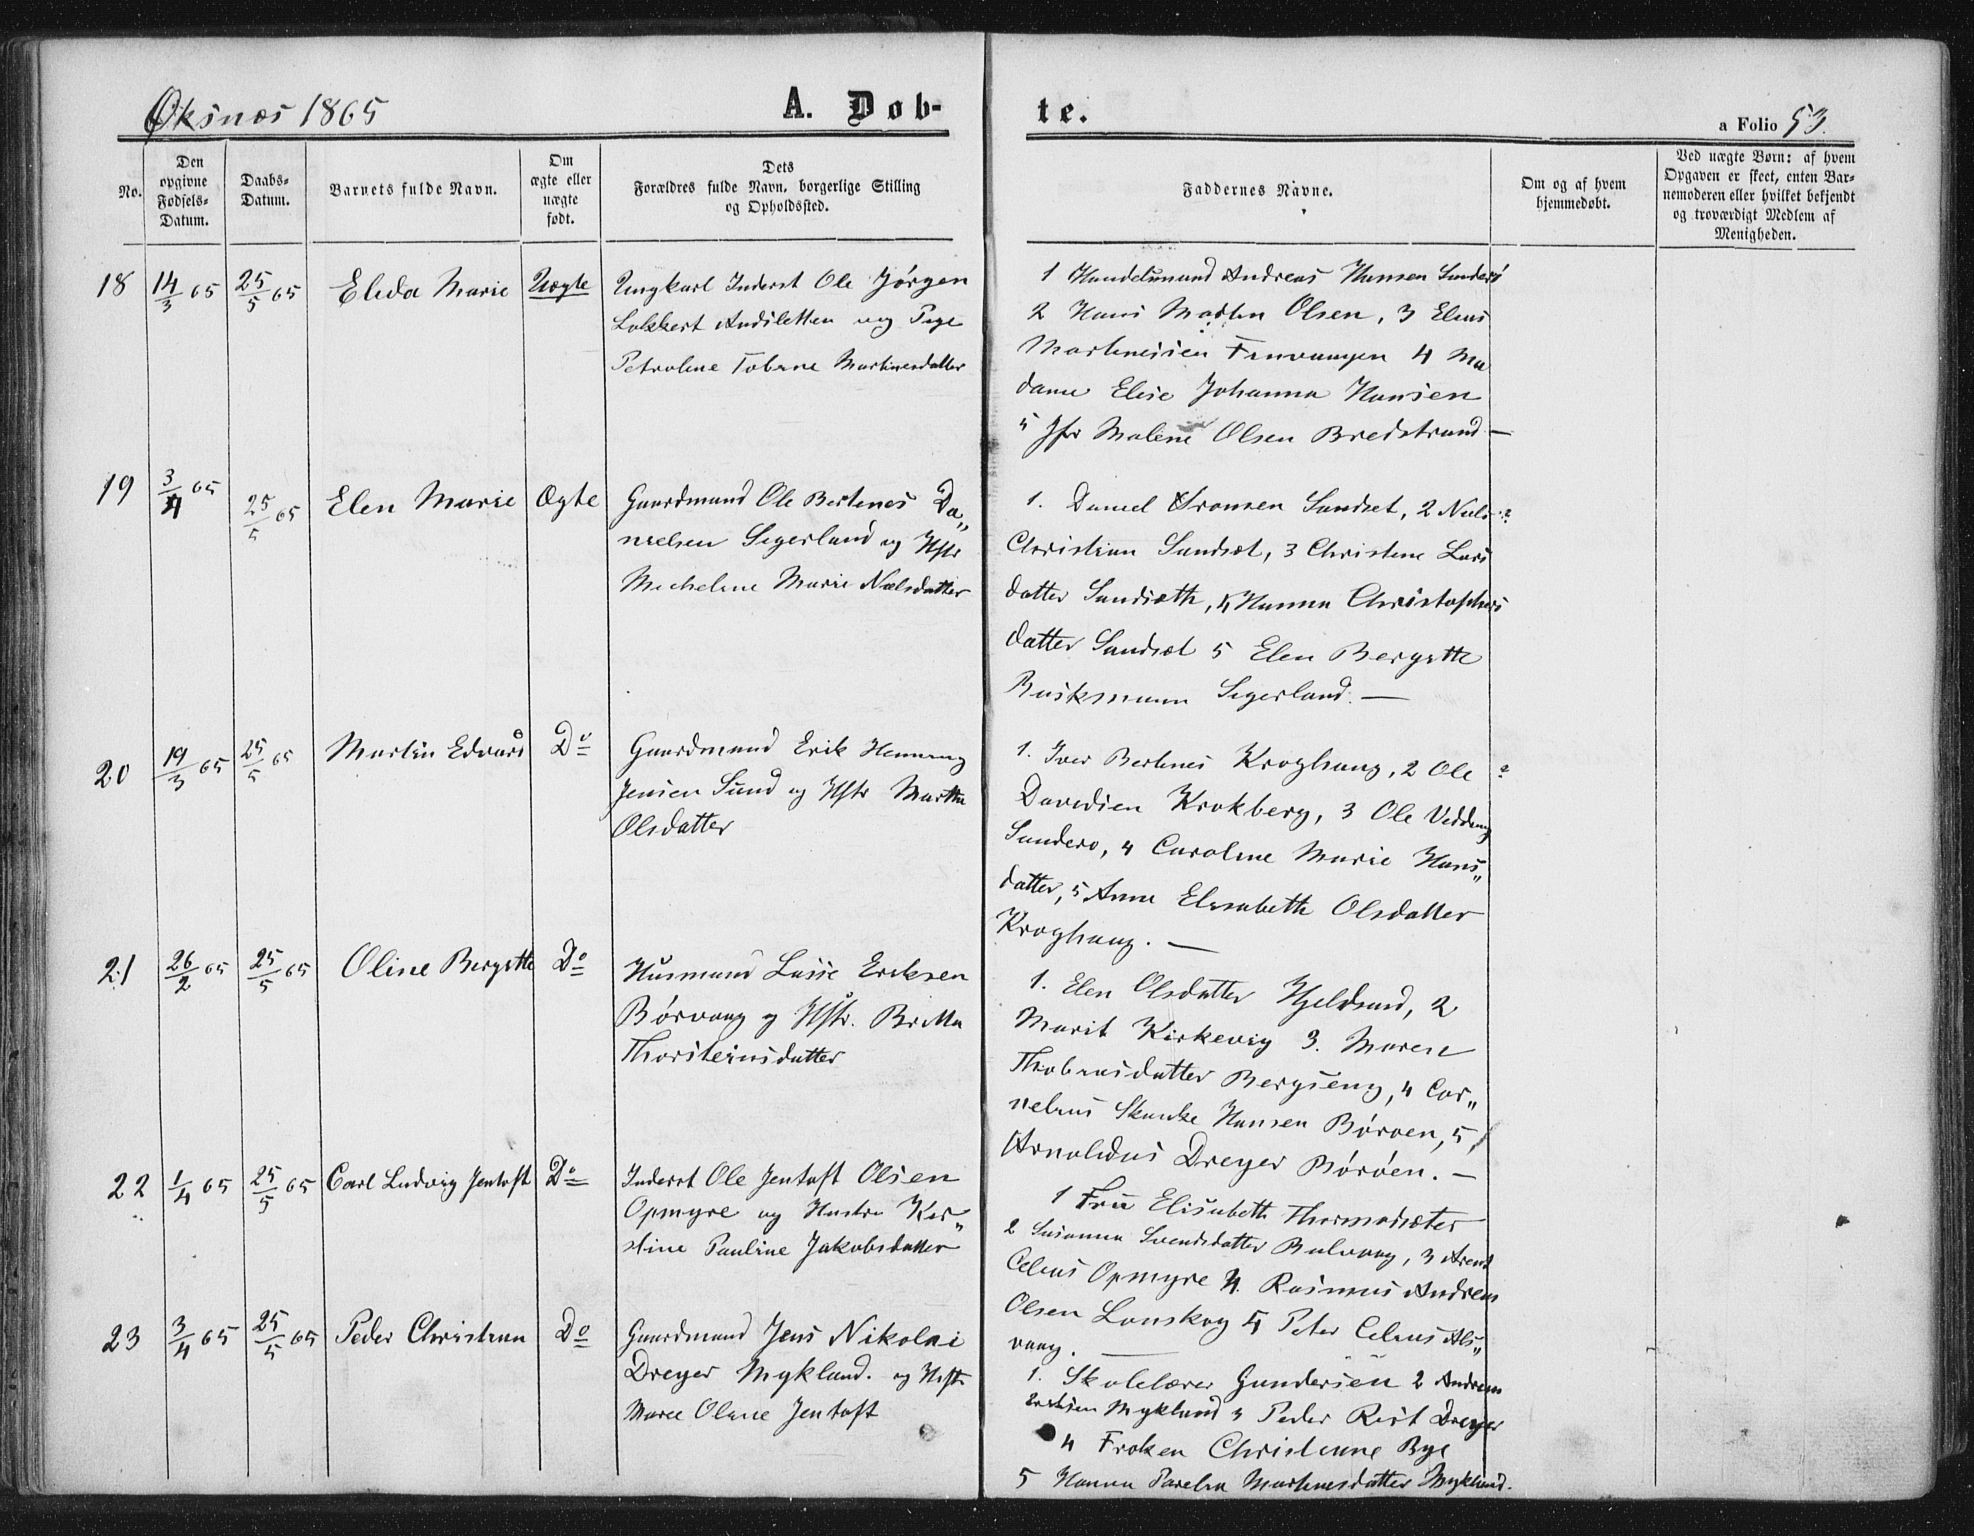 Øksnæs 1865
A. Døb-
te.
a Folio 53.
No.
Den opgivne Fødsels-Datum.
Daabs-Datum.
Barnets fulde Navn.
Om ægte eller uægte født.
Dets Forældres fulde Navn, borgerlige Stilling og Opholdssted.
Faddernes Navne.
Om og af hvem hjemmedøbt.
Ved uægte Børn: af hvem Opgaven er skeet, enten Barnemoderen eller hvilket bekjendt og troværdigt Medlem af Menigheden.
18 14/3 65 25/5 65 Elida Marie Uægte
Ungkarl Inderst Ole Jørgen
Lokkert og Pige
Petroline Martinesdatter
1 Handelsmand Andreas Hansen Sanderø
2 Hans Martin Olsen, 3 Elias
Martinesien 4 Ma
dame Elise Johanna Hansen
5 Jfr Maline Olsen Bredstrand —
19 3/4 65 25/5 65 Elen Marie Ægte
Gaardmand Ole Bertines Da„
nielsen Segerland og Hstr
Micheline Marie Nielsdatter
1. Daniel Sandset, 2 Niels
Christian Sandset, 3 Christine Lars
datter Sandsæth, 4 Hanna Christophers
datter Sandset 5 Elen Bergitte
Buskmann Segerland. —
20 19/3 65 25/5 65 Martin Edvard Do
Gaardmand Erik Henning
Jensen Sund og Hstr Martha
Olsdatter
1. Iver Bertines Kroghaug, 2 Ole
Davidsen Krokberg, 3 Ole Vedding
Sanderø, 4 Caroline Marie Hans„
datter, 5 Anne Elisabeth Olsdatter
Kroghaug. —
21 26/2 65 25/5 65 Oline Bergitte Do
Husmand Lasse Eriksen
Børvaag og Hstr. Britta
Thorsteinsdatter
1. Elen Olsdatter Hjeldsand, 2
Marit Kirkevig 3. Maren
Thobiasdatter Bergseng, 4 Cor„
nelius Skanke Hansen Børøen, 5
Arnoldus Dreyer Børøen. —
22 1/4 65 25/5 65 Carl Ludvig Jentoft Do
Inderst Ole Jentoft Olsen
Opmyre og Hustru Ker„
stine Pauline Jakobsdatter
1 Frue Elisabeth Thormodsæter
2 Susanna Svendsdatter, 3 Arent
Celius Opmyre 4. Rasmus Andreas
Olsen Lonskog 5 Peter Celius Als„
vaag. —
23 3/4 65 25/5 65 Peder Christian Do
Gaardmand Jens Nikolai
Dreyer Mykland. og Hstr
Maree Oline Jentoft
1. Skolelærer Gundersen 2 Andreas
Mykland 3 Peder Rist Dreyer
4 Frøken Christine Bye
5 Hanna Parelia Martinesdatter Mykland.